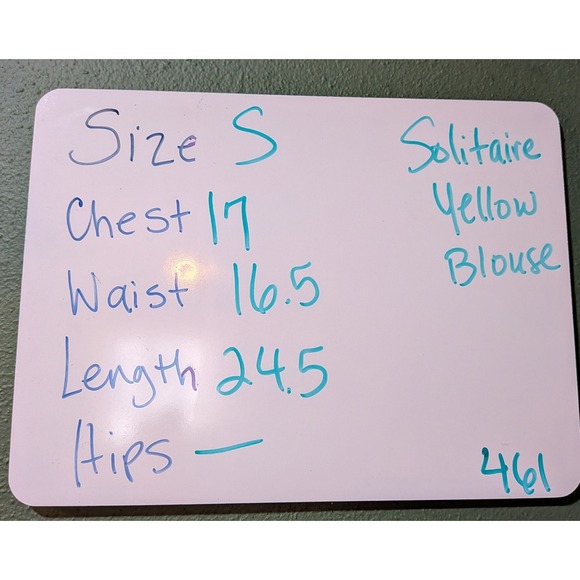 Size S
Chest 17
Waist 16.5
Length 24.5
Hips —
Solitaire
Yellow
Blouse
461